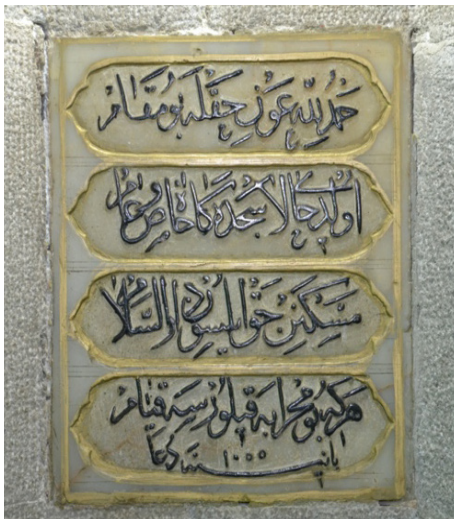 حمد لله عون حقله بو مقام
اولدی حالا سجده كاه خاص و عام
مسكنن حق ایلیسون دار السلام
هر كه بو محرابه قیلورسه قیام
١٠٠٥